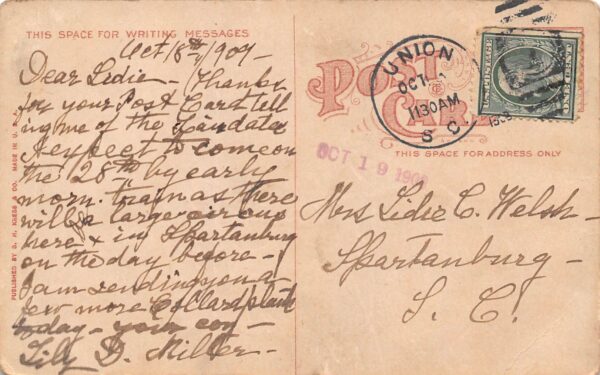 THIS SPACE FOR WRITING MESSAGES
Oct 18th, 1909-
Dear Lidie - (Thanks
for your Post Card tell
ing me of the
I expect to come on
the 28th by early
morn. train as there
will be large circus
here & in Spartanburg
on the day before -
I am sending you a
few more Collard plants
today - your con -
Lily D. Miller -
PUBLISHED BY D. H. & CO. MADE IN U. S. A.
POST
CARD
THIS SPACE FOR ADDRESS ONLY
UNION
OCT
1130AM
S C
U.S. POSTAGE
ONE CENT
OCT 19 190
Mrs Lidie C. Welsh -
Spartanburg -
S. C.